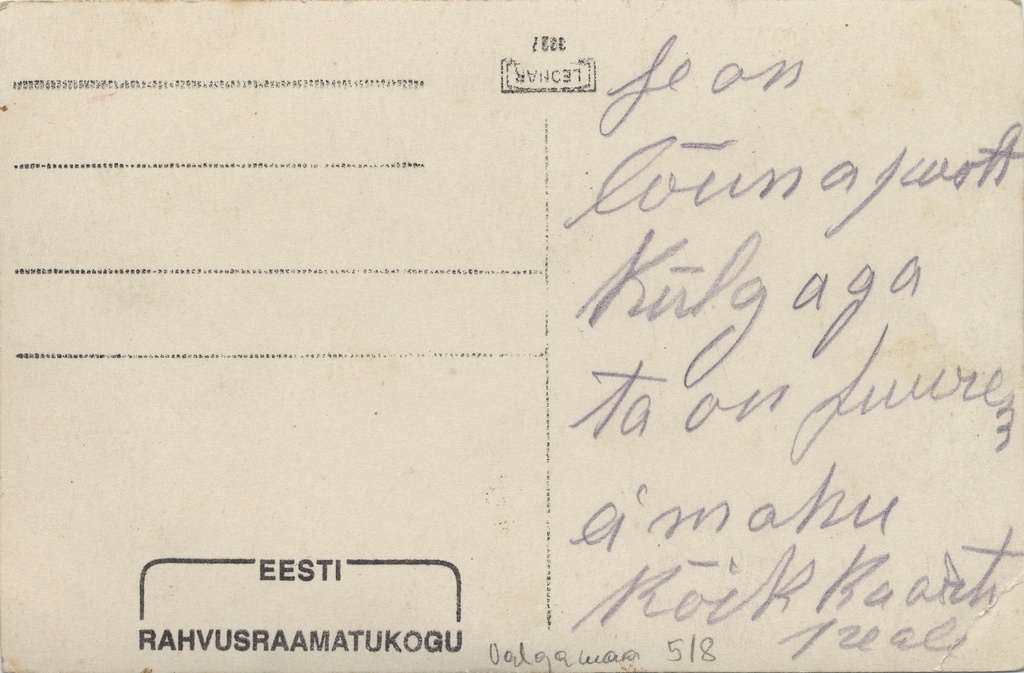 3227
LEONAR
Se on
lõunapoolt
Külg aga
ta on suure
ei mahu
kõik kaarti
peale
EESTI
RAHVUSRAAMATUKOGU
Valgamaa 5/8